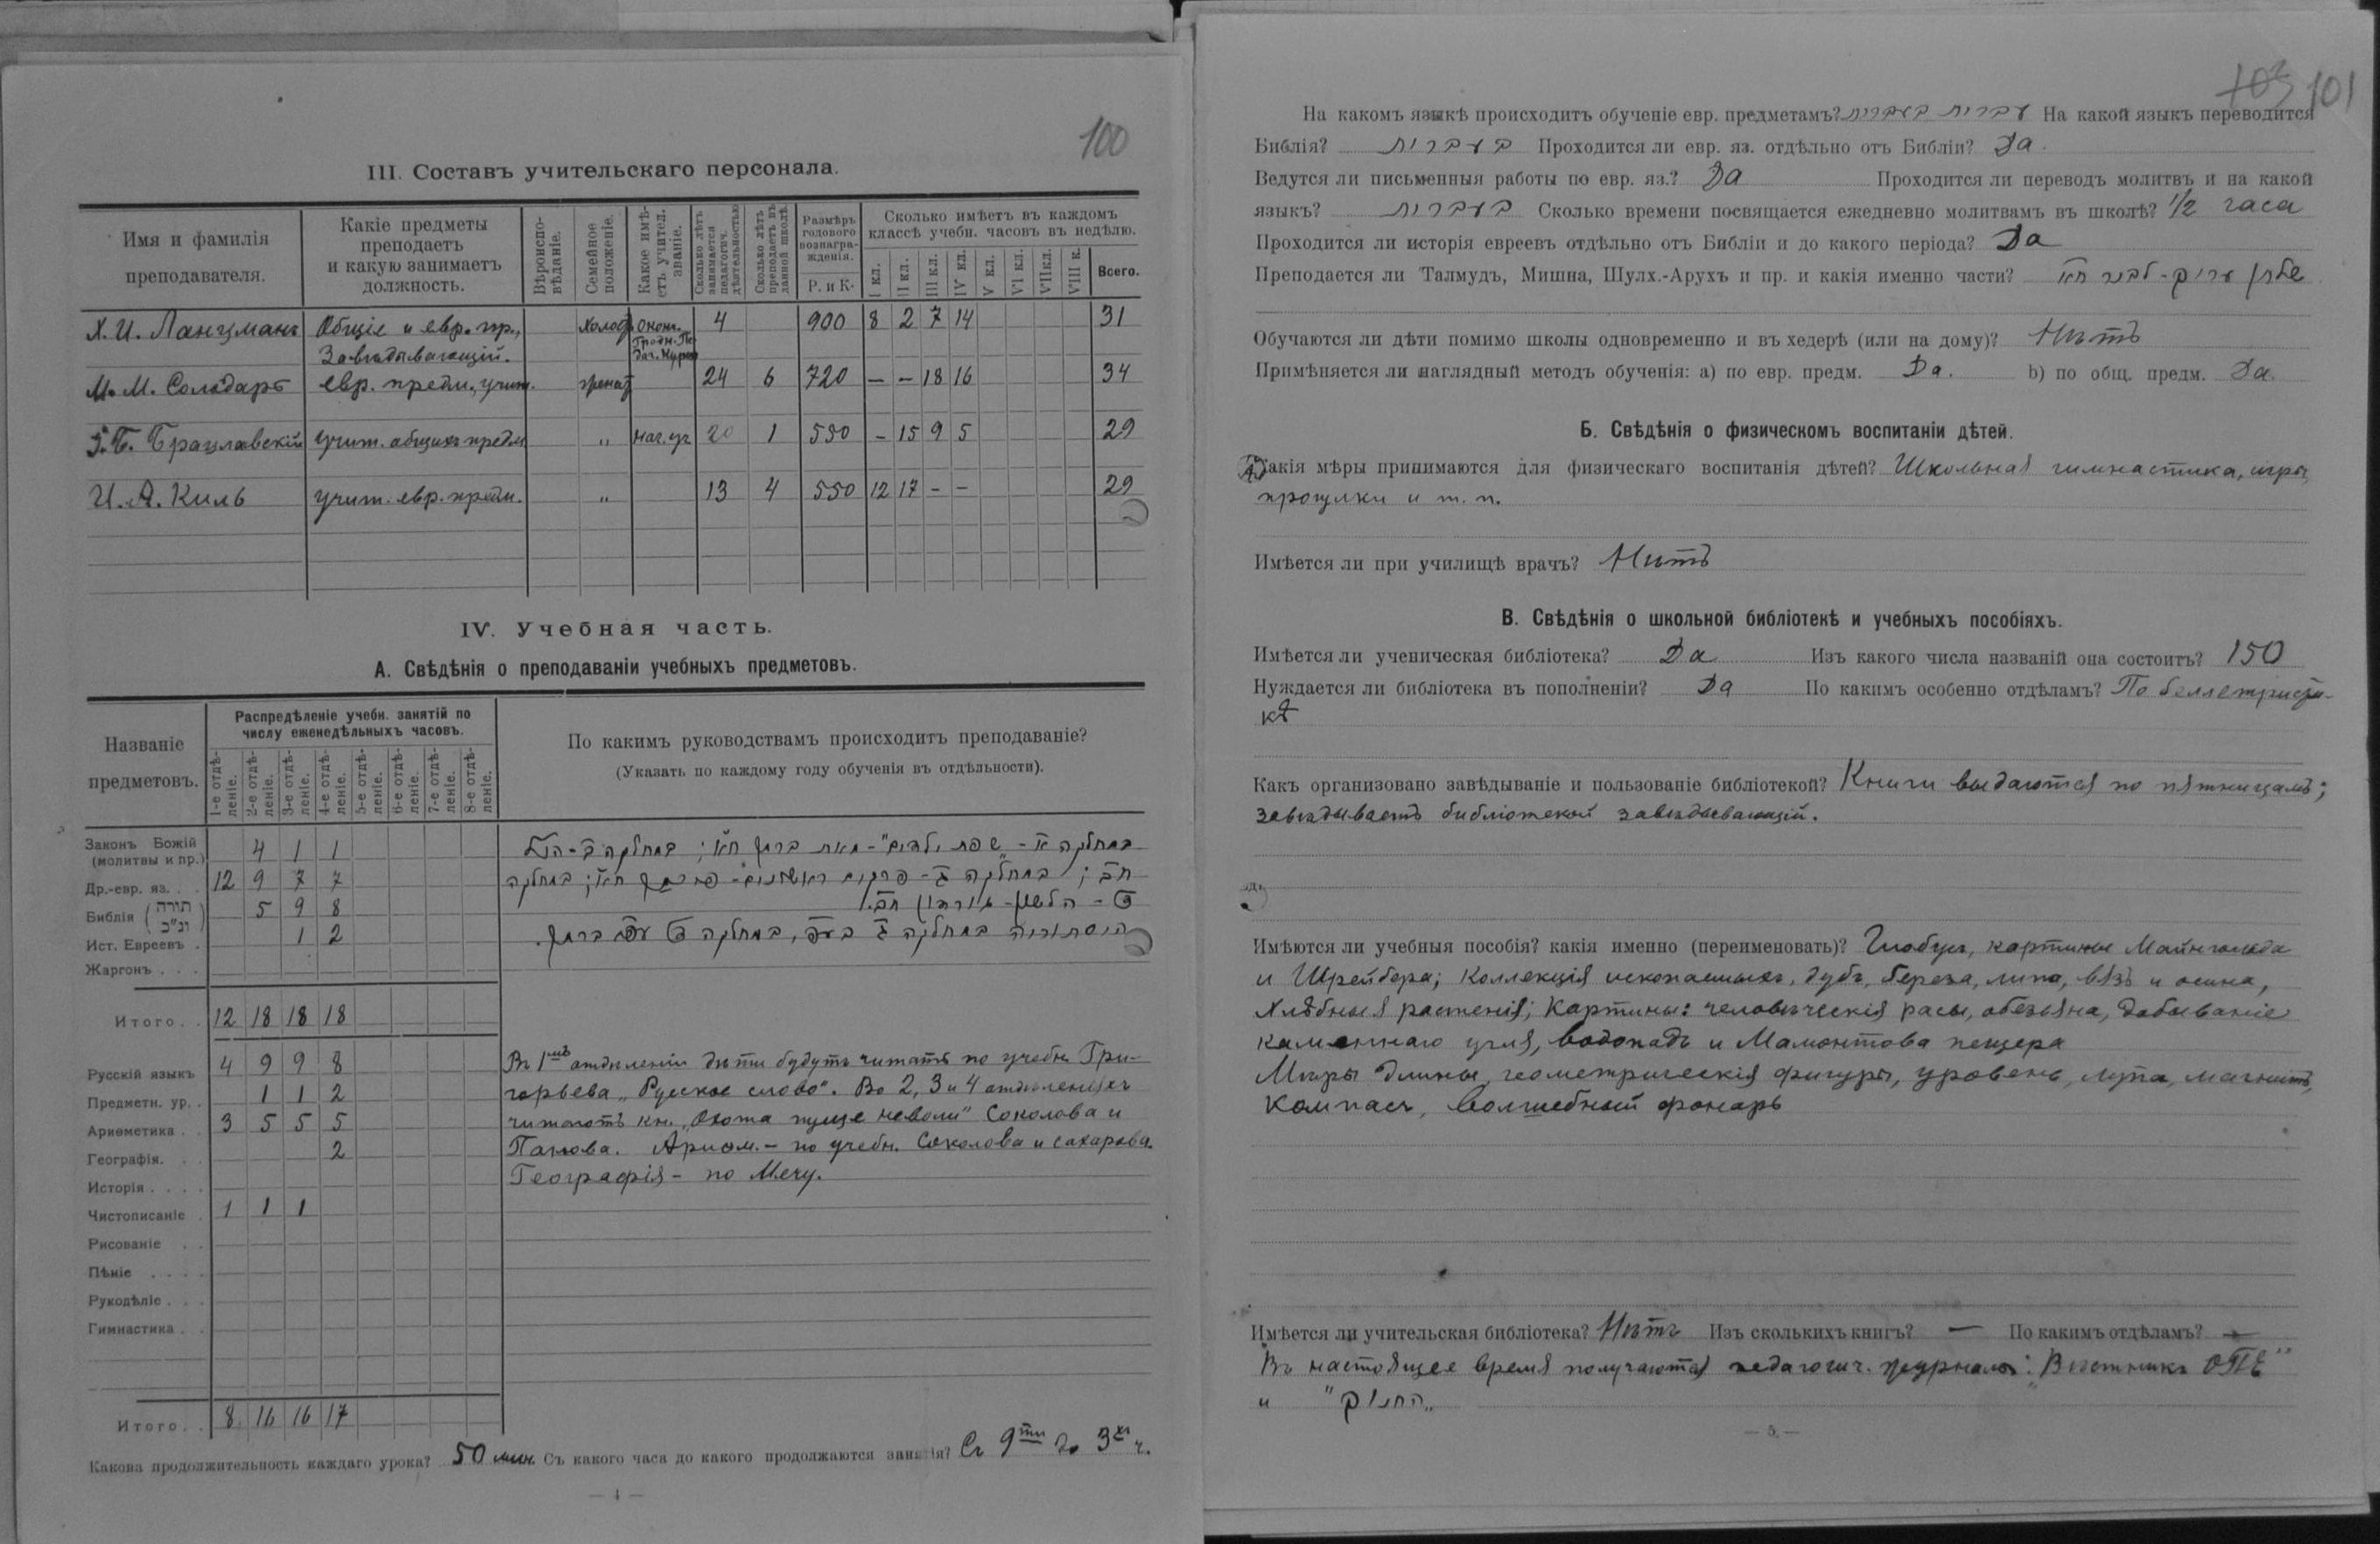 100
III. Составъ учительскаго персонала.
Имя и фамилія преподавателя.
Какіе предметы преподаетъ и какую занимаетъ должность.
Вѣроиспо-вѣданіе.
Семейное положеніе.
Какое имѣ-етъ учител. званіе.
Сколько лѣтъ занимается педагогич. дѣятельностью
Сколько лѣтъ преподаетъ въ данной школѣ.
Размѣръ годового вознагра-жденія.
Р. и К.
Сколько имѣетъ въ каждомъ классѣ учебн. часовъ въ недѣлю.
I кл. II кл. III кл. IV кл. V кл. VI кл. VII кл. VIII к. Всего.
Х. И. Ланцманъ Общіе и евр. пр., Холос Оконч. 4 900 8 2 7 14 31
Завѣдывающій. Гродн. Пе
даг. Курсы
М. М. Солодарь евр. предм., учит. женат 24 6 720 — — 18 16 34
Б. Брацлавскій учит. общихъ предм " нач. уч 20 1 550 - 15 9 5 29
И. А. Киль учит. евр. предм. " 13 4 550 12 17 - - 29
IV. Учебная часть.
А. Свѣдѣнія о преподаваніи учебныхъ предметовъ.
Названіе предметовъ.
Распредѣленіе учебн. занятій по числу еженедѣльныхъ часовъ.
1-е отдѣ-леніе. 2-е отдѣ-леніе. 3-е отдѣ-леніе. 4-е отдѣ-леніе. 5-е отдѣ-леніе. 6-е отдѣ-леніе. 7-е отдѣ-леніе. 8-е отдѣ-леніе.
По какимъ руководствамъ происходитъ преподаваніе?
(Указать по каждому году обученія въ отдѣльности).
Законъ Божій (молитвы и пр.) 4 1 1
Др.-евр. яз. . . 12 9 7 7
Библія (תורה ונ"כ) 5 9 8
Ист. Евреевъ . 1 2
Жаргонъ . . .
במחלקה א - שפת ילדים" - מאת ברמן ח"א; במחלקה ב -
ח"ב; במחלקה ג - פרקים ראשונים - ח"א; במחלקה
ד - הלשון - ח"ב.
היסטוריה במחלקה ג בע"פ, במחלקה ד עפ"י ברמן.
Итого. . 12 18 18 18
Русскій языкъ 4 9 9 8
Предметн. ур. . 1 1 2
Ариѳметика . . 3 5 5 5
Географія. . . 2
Исторія . . . .
Чистописаніе . 1 1 1
Рисованіе . .
Пѣніе . . . .
Рукодѣліе . . .
Гимнастика . .
Въ 1мъ отдѣленіи дѣти будутъ читать по учебн. Гри-
горьева „Русское слово". Во 2, 3 и 4 отдѣленіяхъ
читаютъ кн. „Охота пуще неволи" Соколова и
Панова. Ариѳм. — по учебн. Соколова и Сахарова.
Географія — по Мечу.
Итого. . 8 16 16 17
Какова продолжительность каждаго урока? 50 мин. Съ какого часа до какого продолжаются занятія? Съ 9ти до 3хъ ч.
— 4 —
103 101
На какомъ языкѣ происходитъ обученіе евр. предметамъ? עברית בעברית На какой языкъ переводится
Библія? בעברית Проходится ли евр. яз. отдѣльно отъ Библіи? Да.
Ведутся ли письменныя работы по евр. яз.? Да Проходится ли переводъ молитвъ и на какой
языкъ? בעברית Сколько времени посвящается ежедневно молитвамъ въ школѣ? 1/2 часа
Проходится ли исторія евреевъ отдѣльно отъ Библіи и до какого періода? Да
Преподается ли Талмудъ, Мишна, Шулх.-Арухъ и пр. и какія именно части?
Обучаются ли дѣти помимо школы одновременно и въ хедерѣ (или на дому)? Нѣтъ
Примѣняется ли наглядный методъ обученія: а) по евр. предм. Да. b) по общ. предм. Да.
Б. Свѣдѣнія о физическомъ воспитаніи дѣтей.
Какія мѣры принимаются для физическаго воспитанія дѣтей? Школьная гимнастика, игры,
прогулки и т. п.
Имѣется ли при училищѣ врачъ? Нѣтъ
В. Свѣдѣнія о школьной библіотекѣ и учебныхъ пособіяхъ.
Имѣется ли ученическая библіотека? Да Изъ какого числа названій она состоитъ? 150
Нуждается ли библіотека въ пополненіи? Да По какимъ особенно отдѣламъ? По беллетристи-
кѣ
Какъ организовано завѣдываніе и пользованіе библіотекой? Книги выдаются по пятницамъ;
завѣдываетъ библіотекой завѣдывающій.
Имѣются ли учебныя пособія? какія именно (переименовать)? Глобусъ, картины Майнгольда
и Шрейбера; Коллекція ископаемыхъ, дубъ, береза, липа, вязъ и осина,
Хлѣбныя растенія; Картины: человѣческія расы, обезьяна, добываніе
каменнаго угля, водопадъ и Мамонтова пещера
Мѣры длины, геометрическія фигуры, уровень, лупа, магнитъ,
компасъ, волшебный фонарь
Имѣется ли учительская библіотека? Нѣтъ Изъ сколькихъ книгъ? — По какимъ отдѣламъ? —
Въ настоящее время получаются педагогич. журналы: „Вѣстникъ ОПЕ"
и "החנוך„
— 5 —